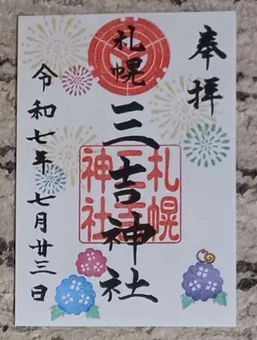 奉拝
札幌
三吉神社
令和七年 七月廿三日
札幌
三吉
神社